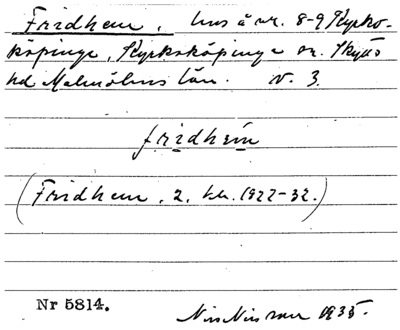 Fridhem, hus å nr. 8-9 Kyrko-
köpinge, Kyrkoköpinge sn. Skytts
hd Malmöhus län. V. 3.
fridhem
(Fridhem, 2. kh. 1922-32.)
Nr 5814.
Nils Nilsson 1935.